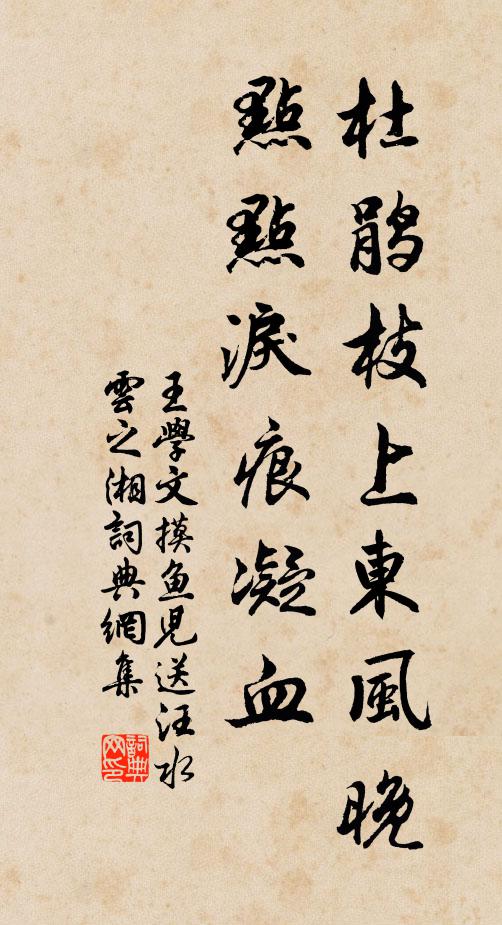 杜鹃枝上東風晚
點點淚痕凝血
王學文摸鱼児送汪水
雲之湘詞典網集
詞典
网印